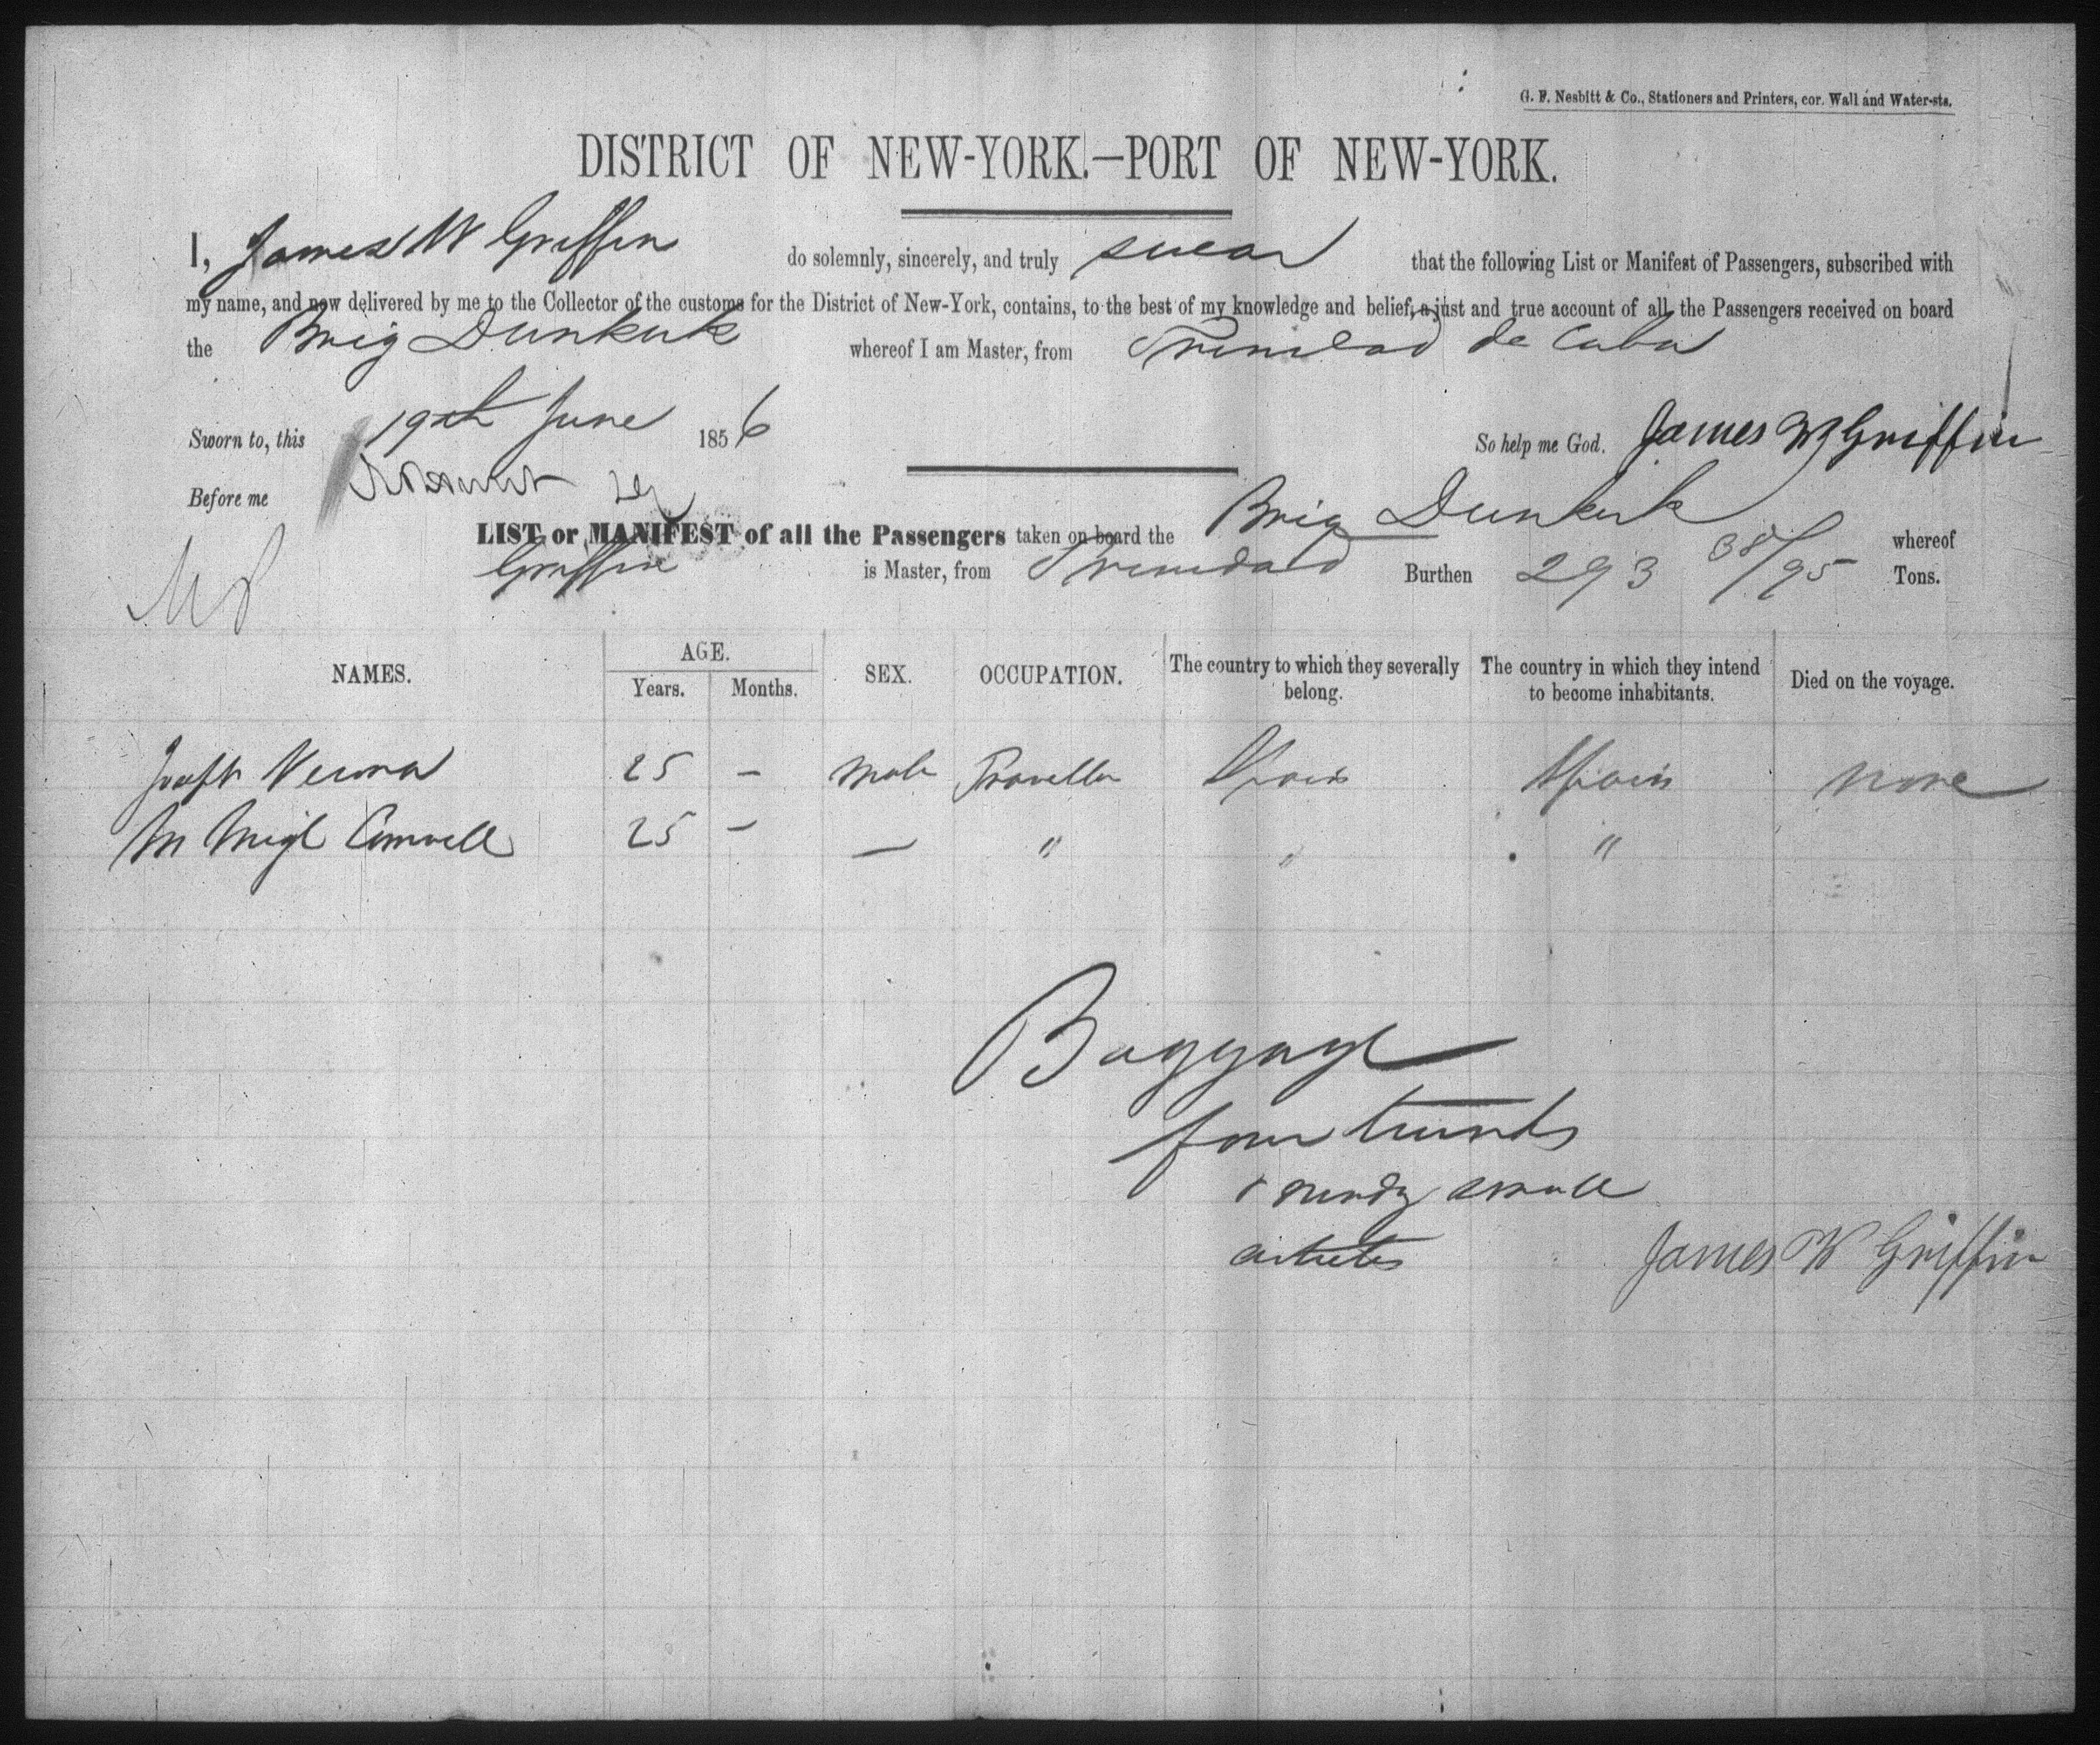 G. F. Nesbitt & Co., Stationers and Printers, cor. Wall and Water-sts.
DISTRICT OF NEW-YORK.—PORT OF NEW-YORK.
I, James W Griffin do solemnly, sincerely, and truly swear that the following List or Manifest of Passengers, subscribed with
my name, and now delivered by me to the Collector of the customs for the District of New-York, contains, to the best of my knowledge and belief, a just and true account of all the Passengers received on board
the Brig Dunkirk whereof I am Master, from Trinidad de Cuba
Sworn to, this 19th June 1856 So help me God. James W Griffin
Before me
LIST or MANIFEST of all the Passengers taken on board the Brig Dunkirk whereof
Griffin is Master, from Trinidad Burthen 293 38/95 Tons.
NAMES. AGE. Years. Months. SEX. OCCUPATION. The country to which they severally belong. The country in which they intend to become inhabitants. Died on the voyage.
Joseph 25 – Male Traveller Spain Spain none
M 25 – — " " "
Baggage
four trunks
& sundy small
articles James W Griffin